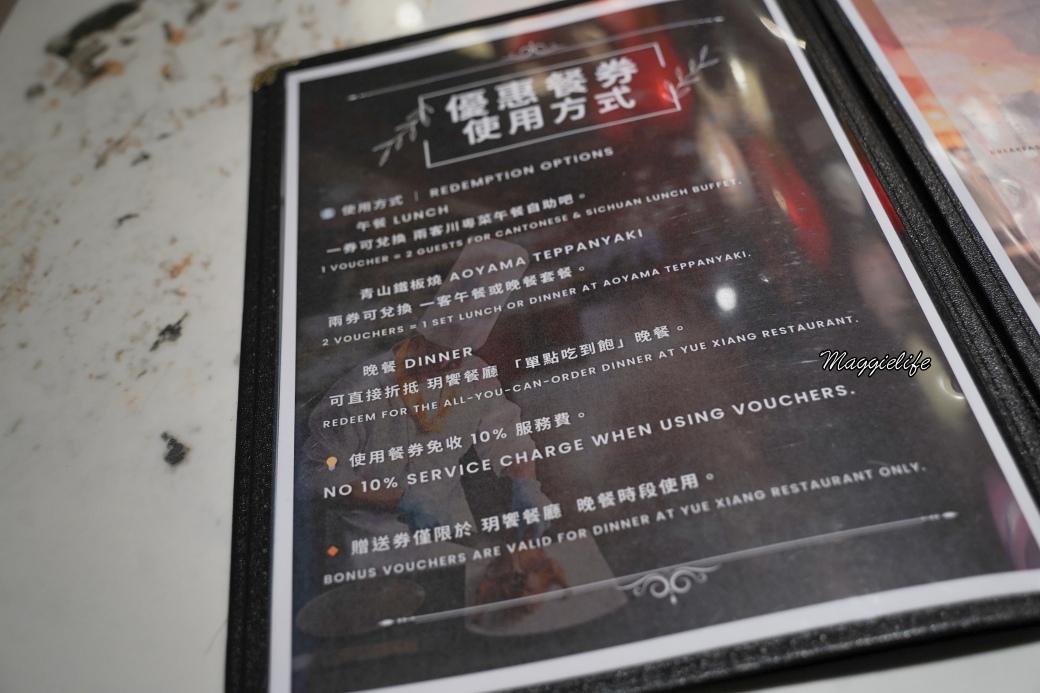 優惠餐券
使用方式
使用方式 | REDEMPTION OPTIONS
午餐 LUNCH
一券可兌換 兩客川粵菜午餐自助吧。
1 VOUCHER = 2 GUESTS FOR CANTONESE & SICHUAN LUNCH BUFFET.
青山鐵板燒 AOYAMA TEPPANYAKI
兩券可兌換 一客午餐或晚餐套餐。
2 VOUCHERS = 1 SET LUNCH OR DINNER AT AOYAMA TEPPANYAKI.
晚餐 DINNER
可直接折抵 玥饗餐廳 「單點吃到飽」晚餐。
REDEEM FOR THE ALL-YOU-CAN-ORDER DINNER AT YUE XIANG RESTAURANT.
使用餐券免收 10% 服務費。
NO 10% SERVICE CHARGE WHEN USING VOUCHERS.
贈送券僅限於 玥饗餐廳 晚餐時段使用。
BONUS VOUCHERS ARE VALID FOR DINNER AT YUE XIANG RESTAURANT ONLY.
Maggielife